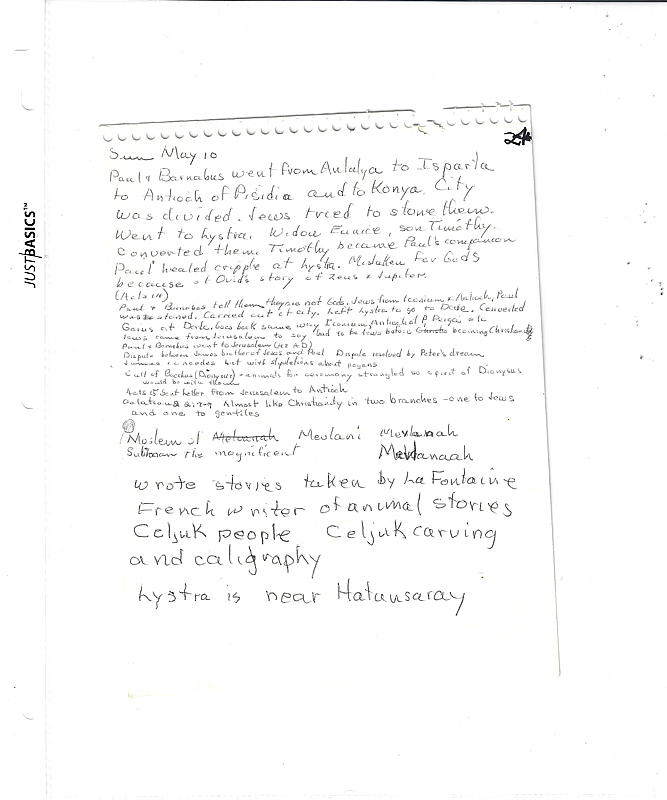 JUSTBASICS™
24
Sun May 10
Paul & Barnabus went from Antalya to Isparta
to Antioch of Pisidia and to Konya. City
was divided. Jews tried to stone them.
Went to Lystra. Widow Eunice, son Timothy.
Converted them. Timothy became Paul's companion
Paul healed cripple at Lystra. Mistaken for Gods
because of Ovid's story of Zeus & Jupiter.
(Acts 14)
Paul & Barnabus tell them they're not Gods. Jews from Iconium & Antioch, Paul
was stoned. Carried out of city. Left Lystra to go to Derbe. Converted
Gaius at Derbe. Goes back same way Iconium, Antioch of P, Perga
Jews came from Jerusalem to say had to be Jews before becoming Christians
Paul & Barnabus went to Jerusalem (492 A D)
Dispute between James brother of Jesus and Paul Dispute resolved by Peter's dream
James concedes but with stipulations about pagans
Cult of Bacchus (Dionysus) - animals for ceremony strangled so spirit of Dionysus
would be with them
Acts 15 Sent letter from Jerusalem to Antioch
Galatians 2:7-9 Almost like Christianity in two branches - one to Jews
and one to gentiles
Moslem of Mevlanah Meolani Mevlanah
Suliman the magnificent Mevlanaah
wrote stories taken by La Fontaine
French writer of animal stories
Celjuk people Celjuk carving
and caligraphy
Lystra is near Hatunsaray